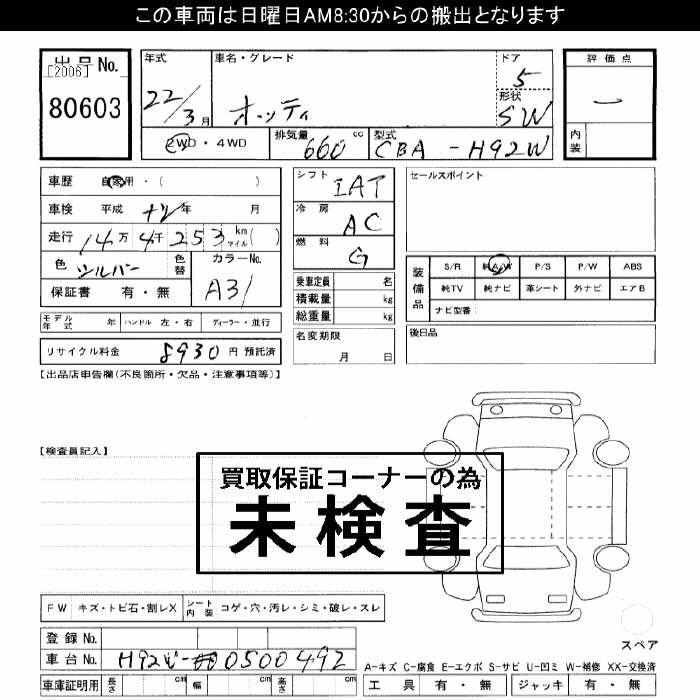 この車両は日曜日AM8:30からの搬出となります
出品No. 年式 車名・グレード ドア 評価点
[2006] 5
80603 22/3月 オッティ 形状 SW ー
2WD・4WD 排気量 660 cc 型式 CBA-H92W 内装
車歴 自家用・( ) シフト IAT セールスポイント
車検 平成 年 月 冷房 AC
走行 14万4千253 km マイル( ) 燃料 G
色 シルバー 色替 カラーNo. A31
保証書 有・無
乗車定員 名
積載量 kg
総重量 kg
装備品 S/R 純A/W P/S P/W ABS
純TV 純ナビ 革シート 外ナビ エアB
ナビ型番:
モデル年式 年 ハンドル 左・右 ディーラー・並行
名変期限 月 日 後日品
リサイクル料金 8930 円 預託済
【出品店申告欄(不良箇所・欠品・注意事項等)】
【検査員記入】
買取保証コーナーの為
未検査
FW キズ・トビ石・割レX シート内装 コゲ・穴・汚レ・シミ・破レ・スレ
スペア
登録No.
車台No. H92W-0500492
A-キズ C-腐食 E-エクボ S-サビ U-凹ミ W-補修 XX-交換済
車庫証明用 長さ 幅 高さ 工具 有・無 ジャッキ 有・無